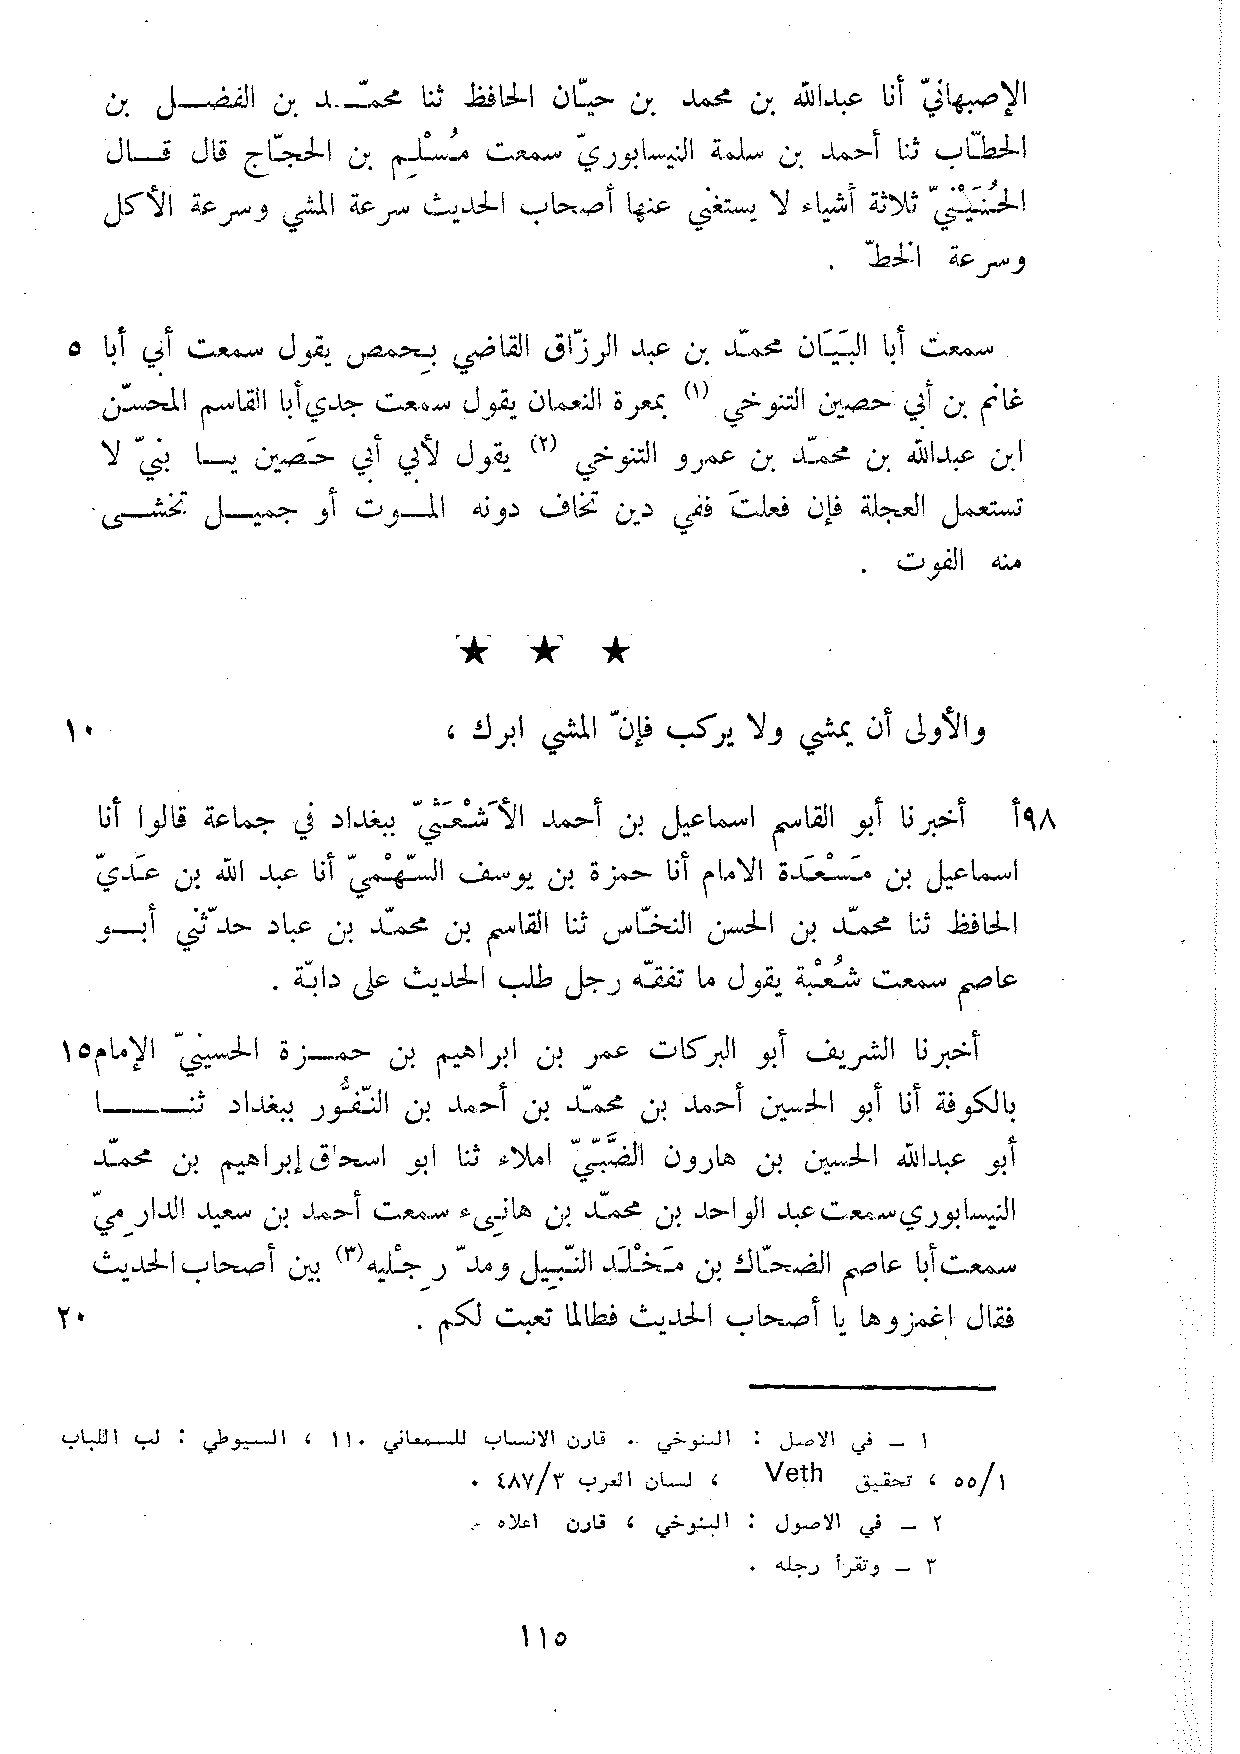 الإصبهانيّ أنا عبدالله بن محمد بن حيّان الحافظ ثنا محمّـد بن الفضـل بن
الخطّاب ثنا أحمد بن سلمة النيسابوريّ سمعت مُسْلِم بن الحجّاج قال قـال
الحُنَيْنيّ ثلاثة أشياء لا يستغني عنها أصحاب الحديث سرعة المشي وسرعة الأكل
وسرعة الخطّ .
سمعت أبا البَيَان محمّد بن عبد الرزّاق القاضي بِحمص يقول سمعت أبي أبا ٥
غانم بن أبي حصين التنوخي (١) بمعرة النعمان يقول سمعت جدي أبا القاسم المحسّن
ابن عبدالله بن محمّد بن عمرو التنوخي (٢) يقول لأبي أبي حَصين يـا بنيّ لا
تستعمل العجلة فإن فعلتَ ففي دين تخاف دونه المـوت أو جميـل تخشـى
منه الفوت .
★ ★ ★
والأولى أن يمشي ولا يركب فإنّ المشي ابرك ، ١٠
٩٨أ أخبرنا أبو القاسم اسماعيل بن أحمد الأَشْعَثيّ ببغداد في جماعة قالوا أنا
اسماعيل بن مَسْعَدة الامام أنا حمزة بن يوسف السَّهْميّ أنا عبد الله بن عَديّ
الحافظ ثنا محمّد بن الحسن النخّاس ثنا القاسم بن محمّد بن عباد حدّثني أبـو
عاصم سمعت شُعْبة يقول ما تفقّه رجل طلب الحديث على دابّة .
أخبرنا الشريف أبو البركات عمر بن ابراهيم بن حمـزة الحسينيّ الإمام ١٥
بالكوفة أنا أبو الحسين أحمد بن محمّد بن أحمد بن النّقُّور ببغداد ثنـــا
أبو عبدالله الحسين بن هارون الضَّبّيّ املاء ثنا ابو اسحاق إبراهيم بن محمّد
النيسابوري سمعت عبد الواحد بن محمّد بن هانِىء سمعت أحمد بن سعيد الدارِميّ
سمعت أبا عاصم الضحّاك بن مَخْلَد النَّبِيل ومدّ رِجْليه (٣) بين أصحاب الحديث
فقال اغمزوها يا أصحاب الحديث فطالما تعبت لكم . ٢٠
١ - في الاصل : التنوخي . قارن الانساب للسمعاني ١١٠ ، السيوطي : لب اللباب
٥٥/١ ، تحقيق Veth ، لسان العرب ٤٨٧/٣ .
٢ - في الاصول : التنوخي ، قارن اعلاه .
٣ - وتقرأ رجله .
١١٥